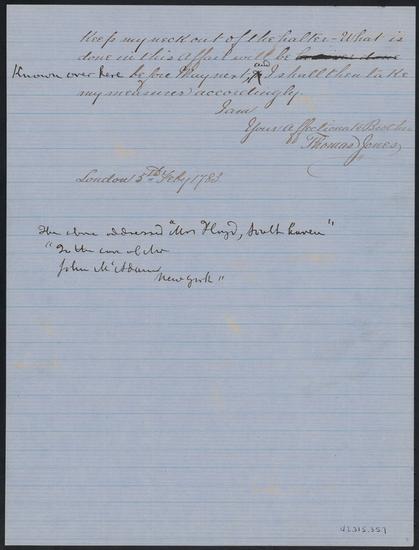 Keep my neck out of the halter - What is
done in this Affair will be
Known over here before May next, and I shall then take
my measures accordingly.
I am
Your affectionate Brother
Thomas Jones
London 5th Feby 1783
The above addressed "Mrs Floyd, South haven"
"To the care of Mr
John McAdam
New York"
42.315.357